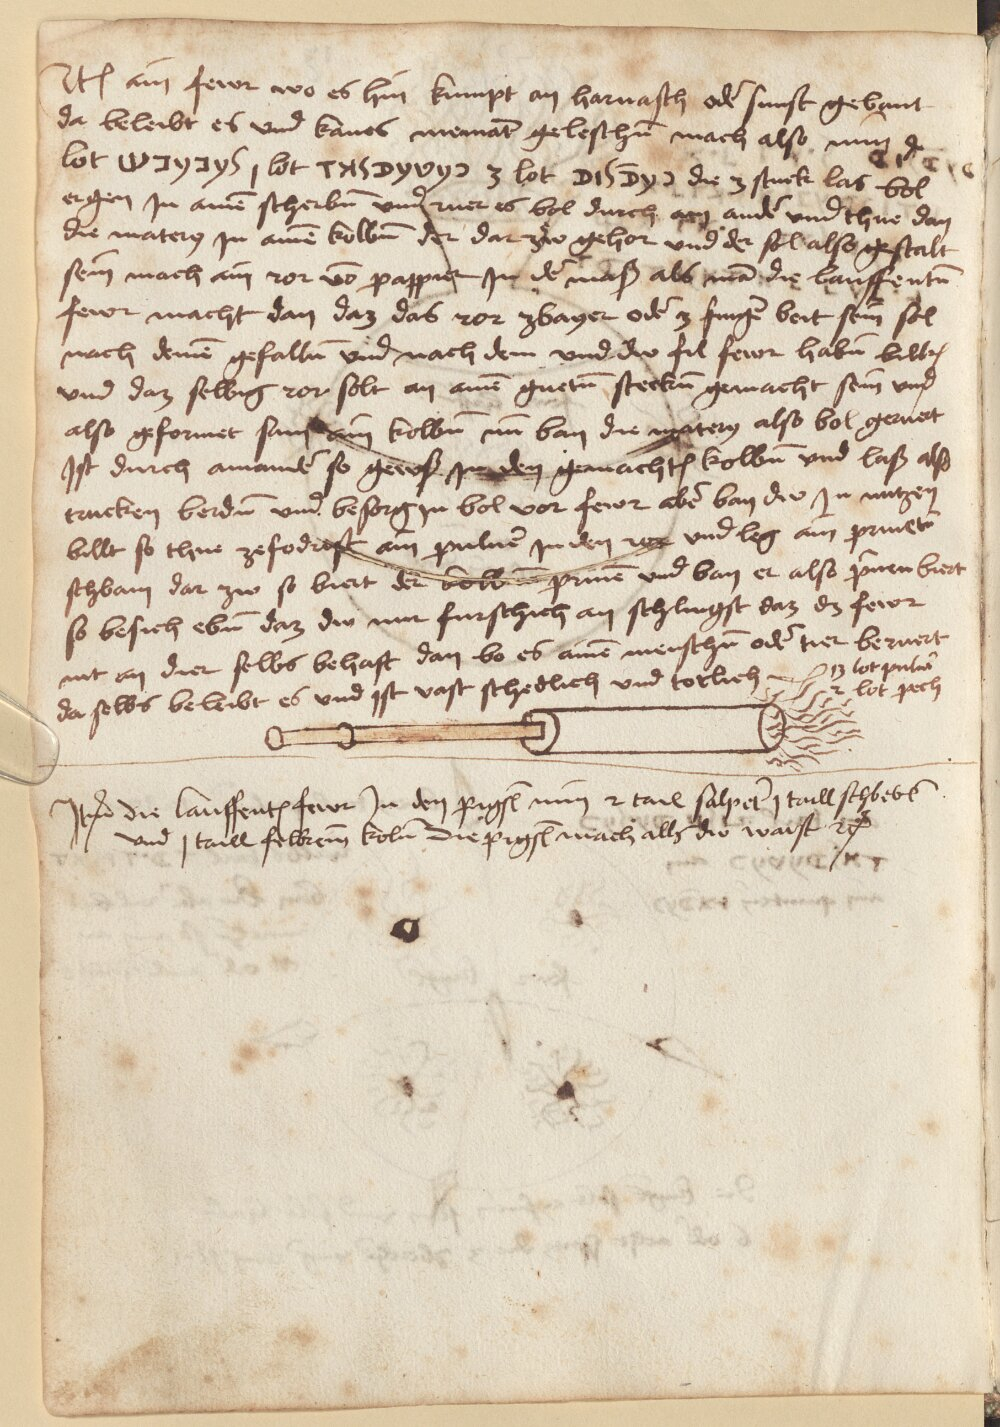 Itm ain fewr wo es hin kumpt an harnasch oder sunst gebant
da beleibt es und kans niemant geleschn mach also nim
lot 1 lot 3 lot die 3 stuck las bol
ergen In ainē scherbn und ruer es bol durch ain ander und thue dan
die matery In ainē kolbn der dar zw gehor und der sol also gestalt
sein mach ain ror vō pappier In der mass als man die lauffentn
fewr macht dan daz das ror zbayer oder 3 finger beit sein sol
nach deinē gefalln und nach dem und dw fil fewr habn billt
und daz selbig ror solt an ainē guetn steckn gemacht sein und
also geformet sam ain kolbn nu ban die matery also bol geruert
Ist durch ainander so gews In den gemachtn kolbn und lass also
trucken berdn und besorg In bol vor fewr aber ban dw In nutzen
billt so thue zefodrist ain pulver In den ror und leg ain prinetn
schbam dar zw so biert der kolbn prinen und ban er also prinen biert
so besich ebn daz dw nur furschich an schlingst daz dz fewr
nit an dier selbs behaft dan bo es ainē menschn oder tier beruert
da selbs beleibt es und ist vast schedlich und totlich
13 lot pulver
2 lot pech
Itm die lauffentn fewr In den pigsn nim 2 tail salpeter 1 taill schbebel
und 1 taill felbrein koln die pigsn mach alls dw waist